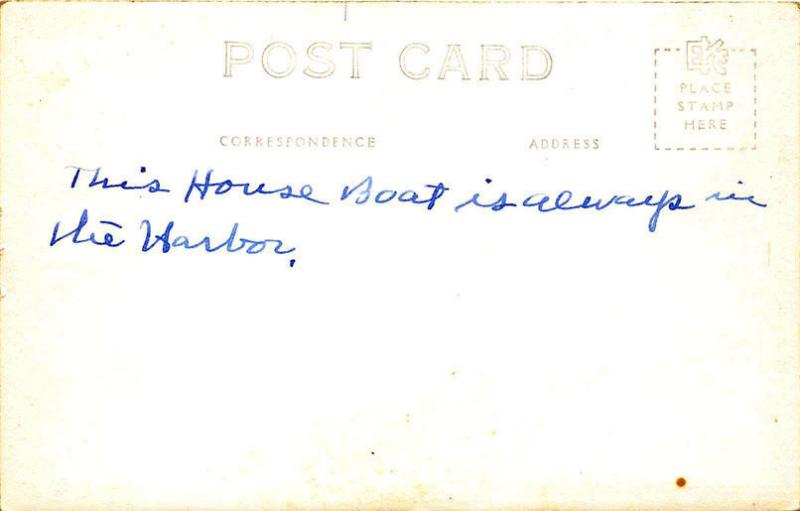 POST CARD
EKC
PLACE
STAMP
HERE
CORRESPONDENCE ADDRESS
This House Boat is always in
the Harbor.